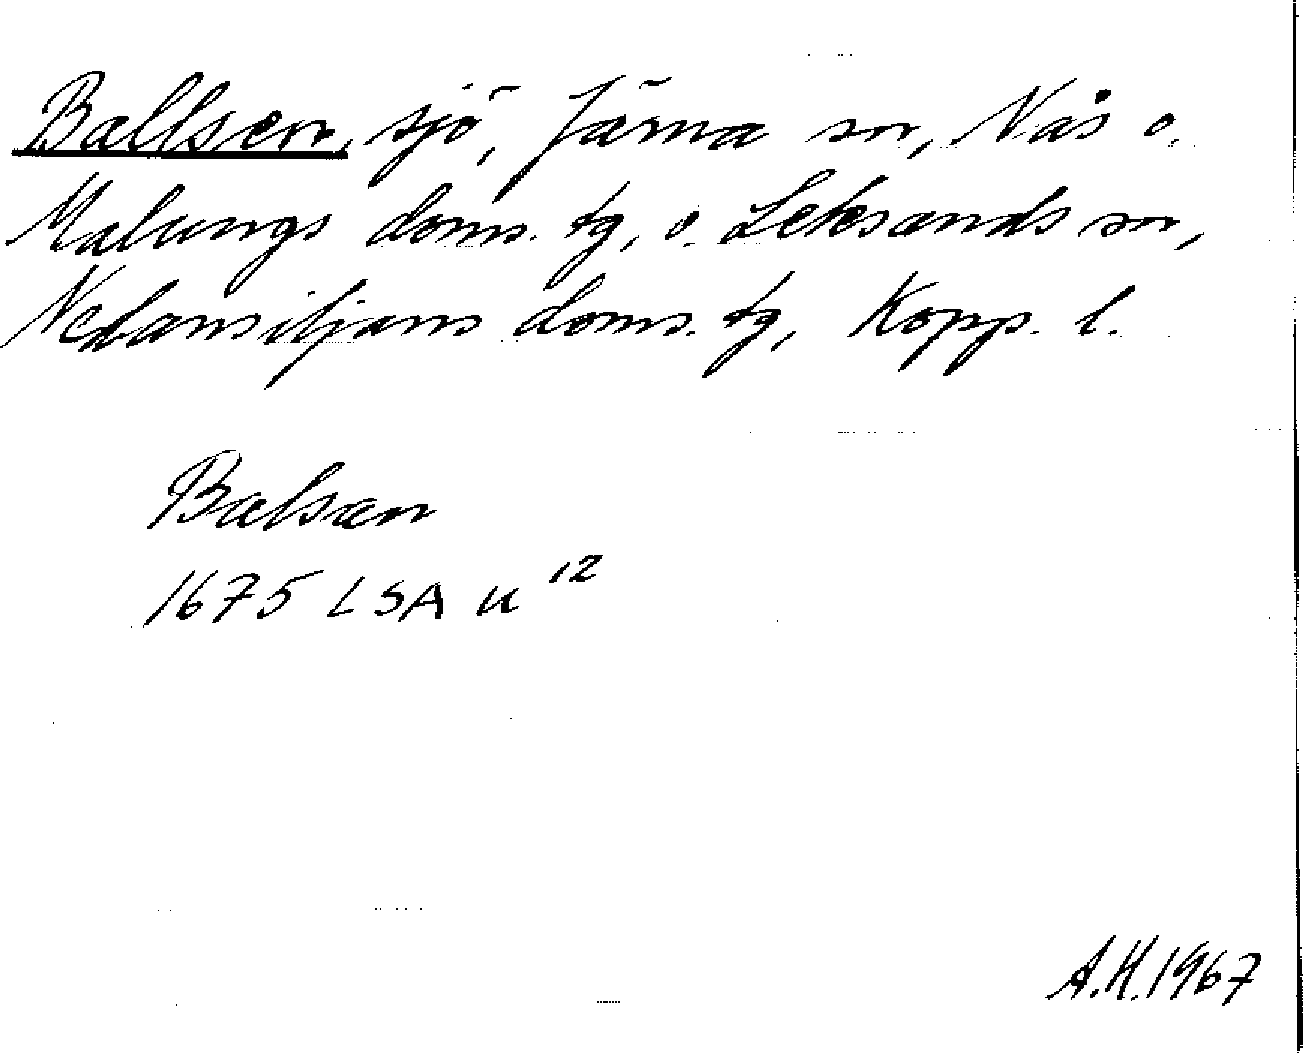 Ballsen, sjö, Järna sn, Nås o.
Malungs doms. tg, o. Leksands sn,
Nedansiljans doms. tg, Kopp. l.
Balsen
1675 LSA U 12
A.H. 1967